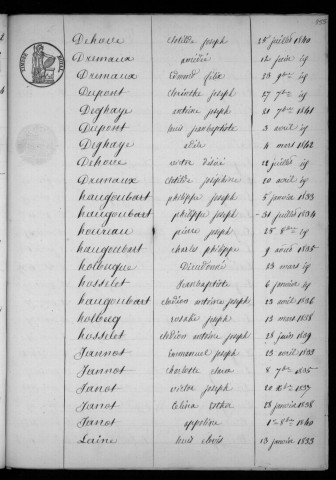 Dehove clotilde joseph 24 juillet 1840
Drumaux amédée 12 juin id
Drumaux Edmond félix 26 9bre id
Dupont clorinthe joseph 27 7bre id
Deghaye antoine joseph 21 7bre 1841
Dupont louis jeanbaptiste 3 avril id
Deghaye élise 4 mars 1842
Dehove victor désiré 12 juillet id
Drumaux clotilde joséphine 20 avril id
haugoubart philippe joseph 5 janvier 1833
haugoubart philippe joseph 31 juillet 1834
pierre joseph 25 8bre id
haugoubart charles philippe 9 août 1835
Dieudonné 23 mars id
hosselet Jeanbaptiste 6 janvier id
haugoubart clodion antoine joseph 23 avril 1836
rosalie joseph 13 mars 1838
hosselet clodion antoine joseph 28 juin 1839
Jannot Emmanuel joseph 23 avril 1833
Jannot charlotte 8 7bre 1835
Janot victor joseph 20 1837
Janot Celina Esther 28 janvier 1838
Janot appoline 1er 8bre 1840
Laine louis clovis 13 janvier 1833